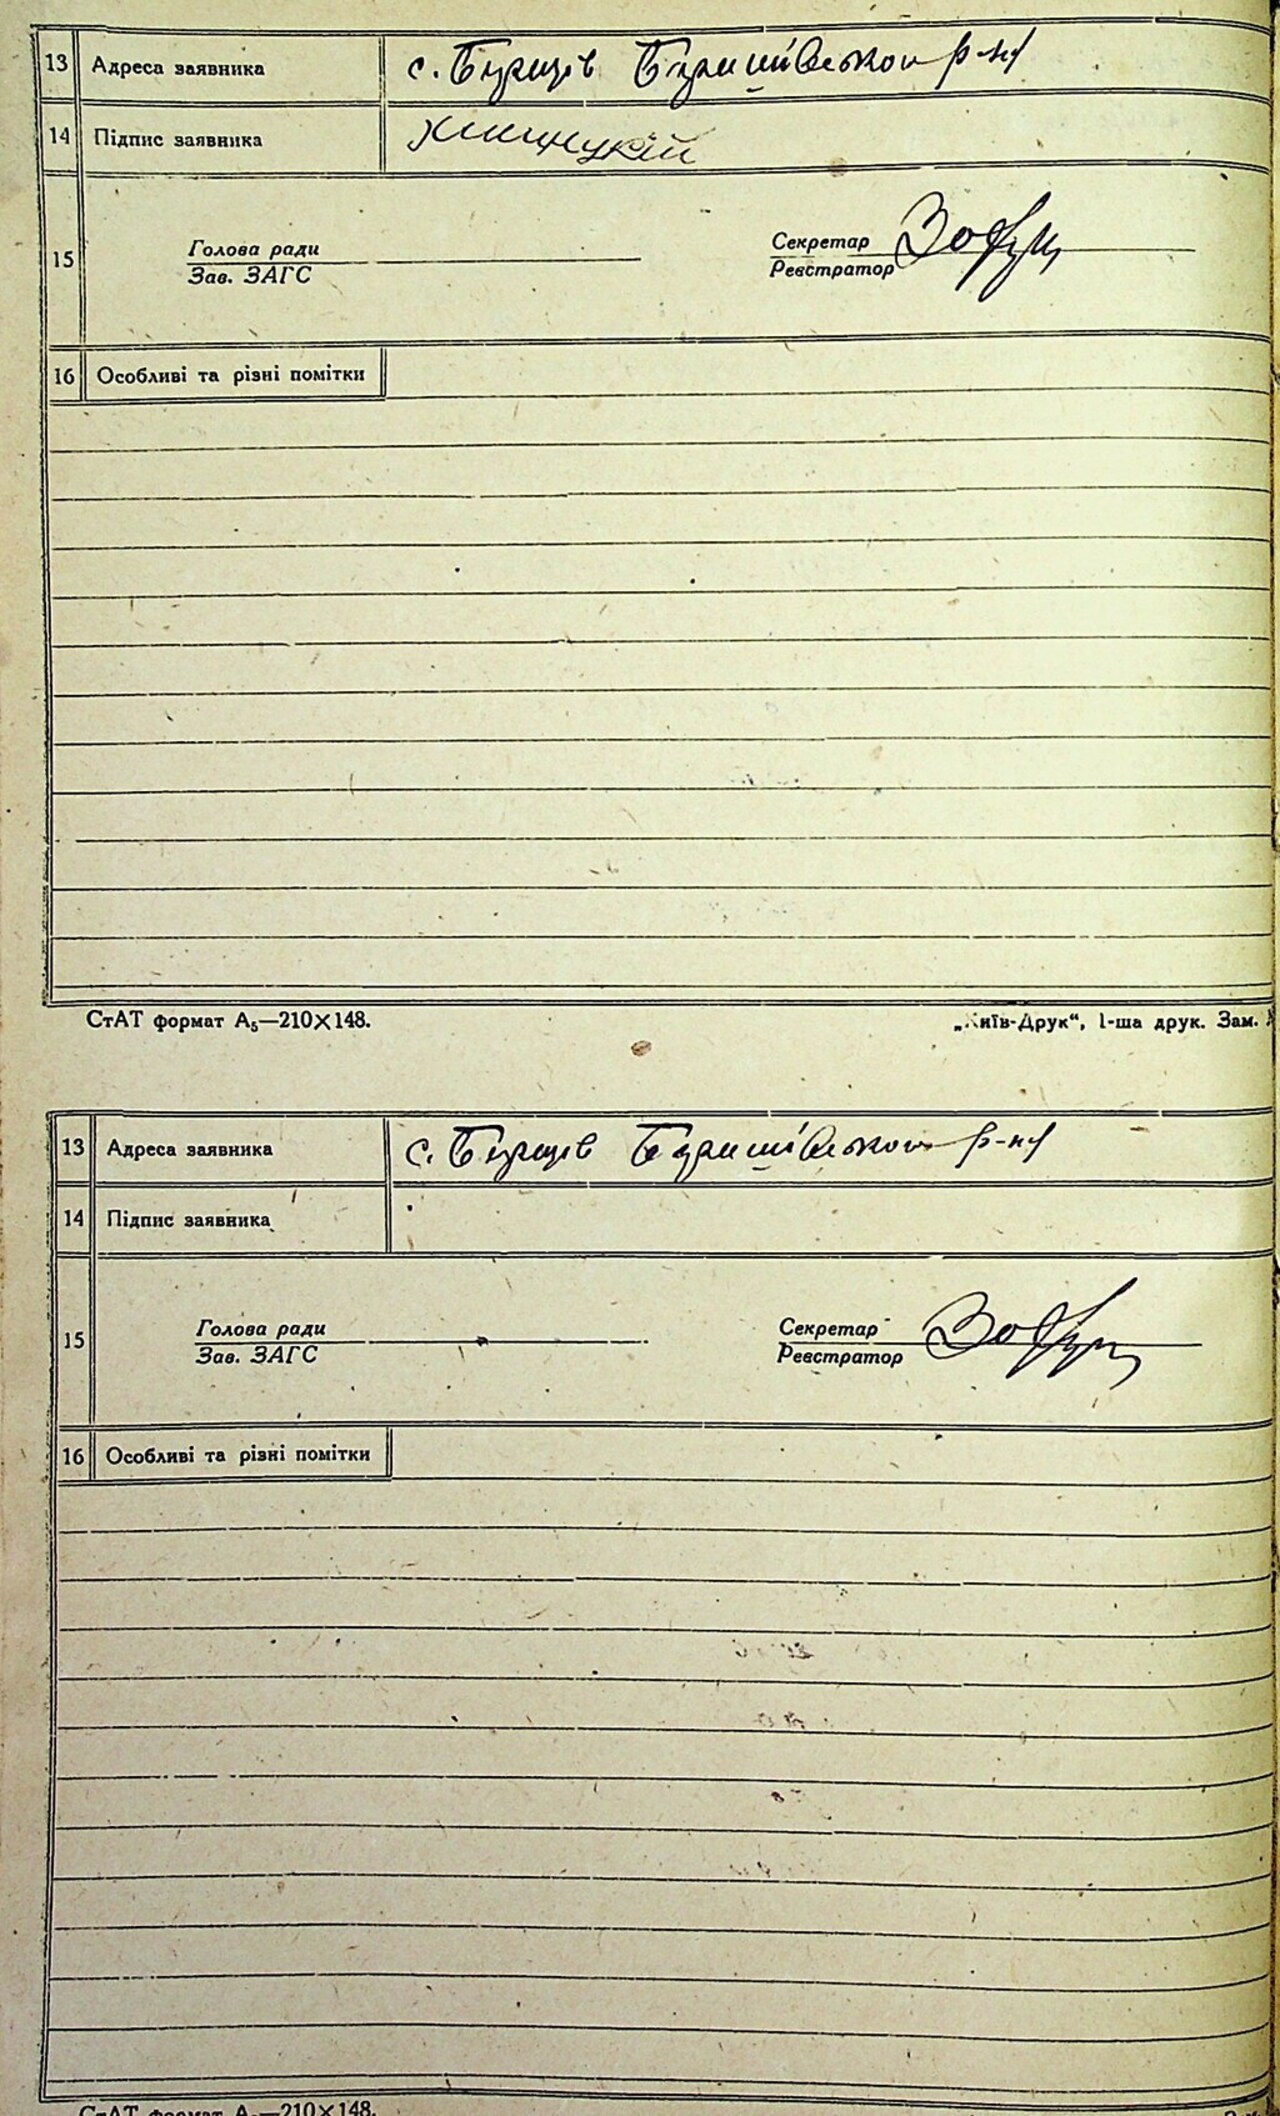 13 Адреса заявника с. Бурців Баришівського р-н
14 Підпис заявника
15 Голова ради Секретар
Зав. ЗАГС Реєстратор
16 Особливі та різні помітки
СтАТ формат А₅—210×148. „Київ-Друк“, 1-ша друк. Зам.
13 Адреса заявника с. Бурців Баришівського р-н
14 Підпис заявника
15 Голова ради Секретар
Зав. ЗАГС Реєстратор
16 Особливі та різні помітки
СтАТ формат А₅—210×148.